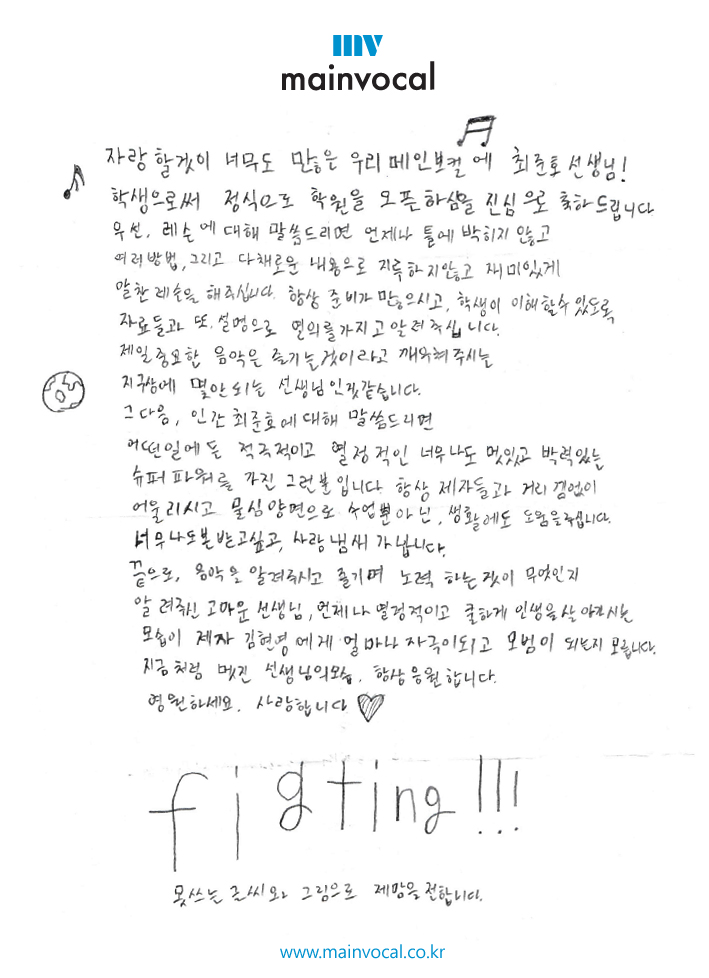 mv
mainvocal
자랑 할것이 너무도 많은 우리 메인보컬에 최준호 선생님!
학생으로써 정식으로 학원을 오픈하심을 진심으로 축하드립니다
우선, 레슨에 대해 말씀드리면 언제나 틀에 박히지 않고
여러방법, 그리고 다채로운 내용으로 지루하지않고 재미있게
알찬 레슨을 해주십니다. 항상 준비가 많으시고, 학생이 이해할수 있도록
자료들과 또, 설명으로 열의를가지고 알려주십니다.
제일 중요한 음악은 즐기는것이라고 깨우쳐주시는
지구상에 몇안되는 선생님인것같습니다.
그다음, 인간 최준호에 대해 말씀드리면
어떤일에든 적극적이고 열정적인 너무나도 멋있고 박력있는
슈퍼파워를 가진 그런분입니다. 항상 제자들과 거리낌없이
어울리시고 물심양면으로 수업뿐아닌, 생활에도 도움을주십니다.
너무나도본받고싶고, 사람냄새가납니다.
끝으로, 음악을 알려주시고 즐기며 노력 하는것이 무엇인지
알려주신 고마운 선생님, 언제나 열정적이고 쿨하게 인생을 살아가시는
모습이 제자 김현영에게 얼마나 자극이되고 모범이 되는지 모릅니다.
지금처럼 멋진 선생님의모습, 항상응원합니다.
영원하세요. 사랑합니다
figting!!!
못쓰는 글씨와 그림으로 제맘을전합니다.
www.mainvocal.co.kr